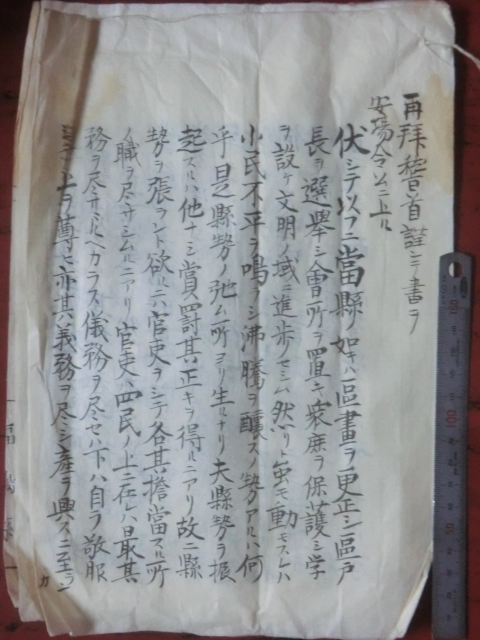 再拝稽首謹テ書ヲ
安場令公ニ上ル
伏シテ以フニ當縣ノ如キハ區畫ヲ更正シ區戸
長ヲ選擧シ會所ヲ置キ衆庶ヲ保護シ学
ヲ設ケ文明ノ域ニ進歩ノセシム然リト虽モ動モスレハ
小民不平ヲ鳴ラシ沸騰ヲ醸スノ勢アルハ何
乎是縣勢ノ弛ム所ヨリ生ルナリ夫縣勢ヲ振
起スルハ他ナシ賞罰其正キヲ得ルニアリ故ニ縣
勢ヲ張ラント欲ルニハ官吏ヲシテ各其擔當スル所
ノ職ヲ尽サシムルニアリ官吏ハ四民ノ上ニ在レハ最其
務ヲ尽サヽルヘカラス儀務ヲ尽セハ下ハ自ラ敬服
シテ上ヲ尊ヒ亦其義務ヲ尽シ産ヲ興スニ至ラン
カ